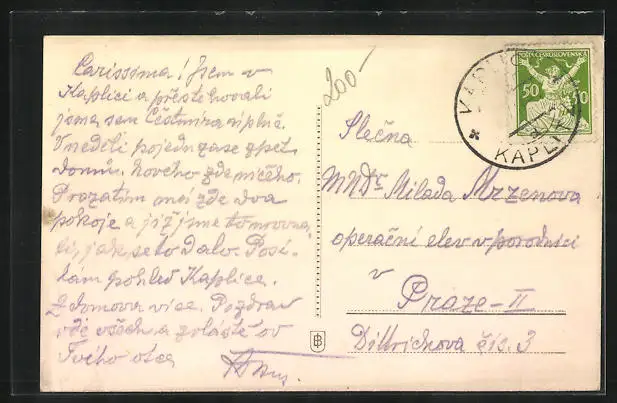 Carissima! Jsem v
Kaplici a přestěhovali
jsme sem Čestmíra úplně.
V neděli pojedu zase zpět
domů. Nového zde ničeho.
Prozatím má zde dva
pokoje a již jsme to srovna-
li, jak se to dalo. Posí-
lám pohled Kaplice.
Z domova více. Pozdrav
ode všech a zvláště od
Tvého otce
200
POŠTA ČESKOSLOVENSKÁ
50 50
KAPLICE
KAPLI
Slečna
MUDr Milada Mrzenova
operační elev v porodnici
v
Praze-II
Dittrichova čís. 3